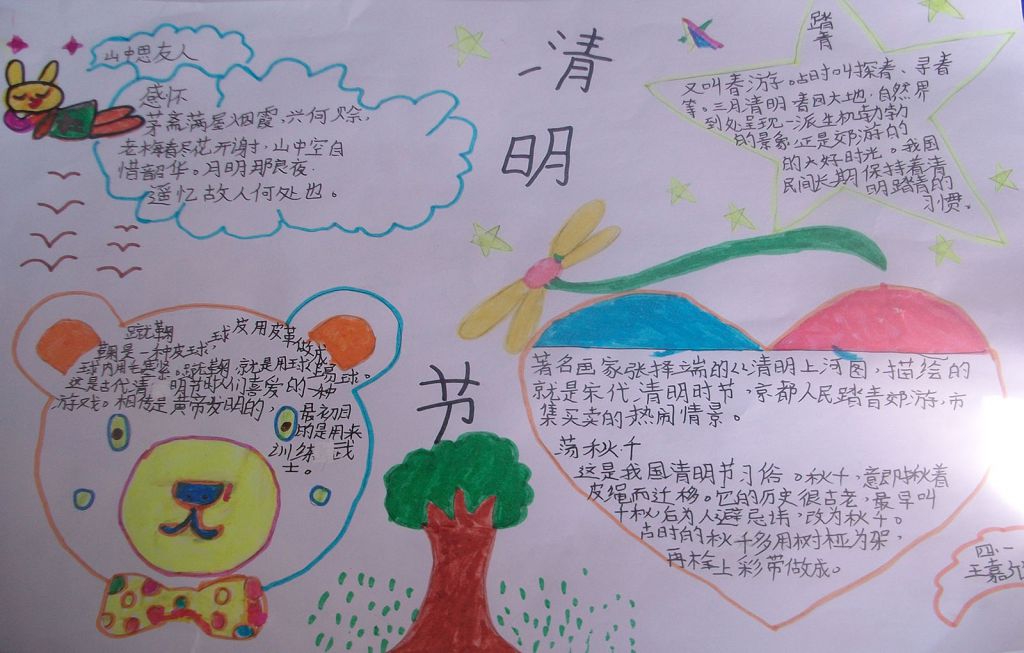 山中思友人
感怀
茅斋满屋烟霞,兴何赊,
老梅春尽花开谢,山中空自
惜韶华。月明那良夜.
遥忆故人何处也。
清
明
节
踏
青
又叫春游。古时叫探春、寻春
等。三月清明,春回大地,自然界
到处呈现一派生机勃勃
的景象,正是郊游的
的大好时光。我国
民间长期保持着清
明踏青的
习惯。
蹴鞠
鞠是一种皮球,球皮用皮革做成,
球内用毛塞紧。蹴鞠,就是用球踢球。
这是古代清明节时人们喜爱的一种
游戏。相传是黄帝发明的,最初目
的是用来
训练武
士。
著名画家张择端的《清明上河图,描绘的
就是宋代清明时节,京都人民踏青郊游,市
集买卖的热闹情景。
荡秋千
这是我国清明节习俗。秋千,意即揪着
皮绳而迁移。它的历史很古老,最早叫
千秋,后为人避忌讳,改为秋千。
古时的秋千多用树桠为架,
再栓上彩带做成。
四.一
王嘉